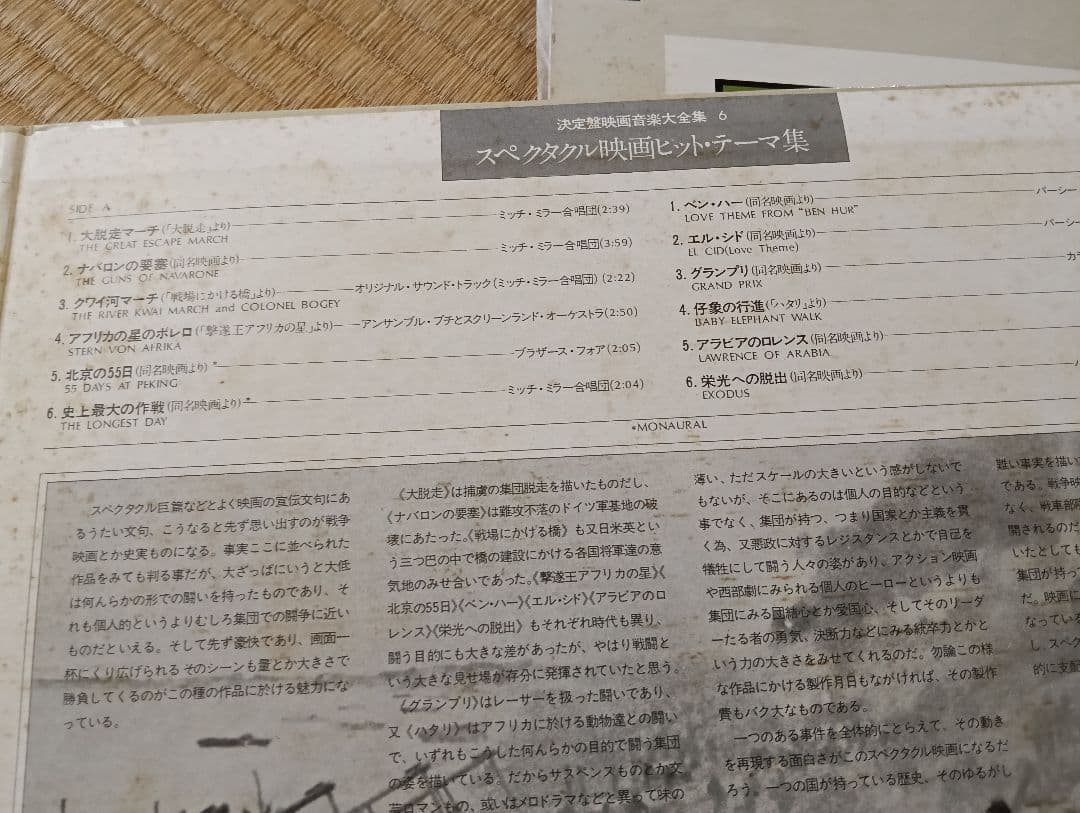 決定盤映画音楽大全集 6
スペクタクル映画ヒット・テーマ集
SIDE A
1. 大脱走マーチ(「大脱走」より) ミッチ・ミラー合唱団(2:39)
THE GREAT ESCAPE MARCH
2. ナバロンの要塞(同名映画より) ミッチ・ミラー合唱団(3:59)
THE GUNS OF NAVARONE
3. クワイ河マーチ(「戦場にかける橋」より) オリジナル・サウンド・トラック(ミッチ・ミラー合唱団)(2:22)
THE RIVER KWAI MARCH and COLONEL BOGEY
4. アフリカの星のボレロ(「撃遂王アフリカの星」より) アンサンブル・プチとスクリーンランド・オーケストラ(2:50)
STERN VON AFRIKA
5. 北京の55日(同名映画より)* ブラザース・フォア(2:05)
55 DAYS AT PEKING
6. 史上最大の作戦(同名映画より)* ミッチ・ミラー合唱団(2:04)
THE LONGEST DAY
1. ベン・ハー(同名映画より) パーシー
LOVE THEME FROM "BEN HUR"
2. エル・シド(同名映画より) パーシー
EL CID(Love Theme)
3. グランプリ(同名映画より)
GRAND PRIX
4. 仔象の行進(「ハタリ」より)
BABY ELEPHANT WALK
5. アラビアのロレンス(同名映画より)
LAWRENCE OF ARABIA
6. 栄光への脱出(同名映画より)
EXODUS
*MONAURAL
スペクタクル巨篇などとよく映画の宣伝文句にあ
るうたい文句、こうなると先ず思い出すのが戦争
映画とか史実ものになる。事実ここに並べられた
作品をみても判る事だが、大ざっぱにいうと大低
は何んらかの形での闘いを持ったものであり、そ
れも個人的というよりむしろ集団での闘争に近い
ものだといえる。そして先ず豪快であり、画面一
杯にくり広げられるそのシーンも量とか大きさで
勝負してくるのがこの種の作品に於ける魅力にな
っている。
《大脱走》は捕虜の集団脱走を描いたものだし、
《ナバロンの要塞》は難攻不落のドイツ軍基地の破
壊にあたった。《戦場にかける橋》も又日米英とい
う三つ巴の中で橋の建設にかける各国将軍達の意
気地のみせ合いであった。《撃遂王アフリカの星》《
北京の55日》《ベン・ハー》《エル・シド》《アラビアのロ
レンス》《栄光への脱出》もそれぞれ時代も異り、
闘う目的にも大きな差があったが、やはり戦闘と
いう大きな見せ場が存分に発揮されていたと思う。
《グランプリ》はレーサーを扱った闘いであり、
又《ハタリ》はアフリカに於ける動物達との闘い
で、いずれもこうした何んらかの目的で闘う集団
の姿を描いている。だからサスペンスものとか文
芸ロマンもの、或いはメロドラマなどと異って味の
薄い、ただスケールの大きいという感がしないで
もないが、そこにあるのは個人の目的などという
事でなく、集団が持つ、つまり国家とか主義を貫
く為、又悪政に対するレジスタンスとかで自己を
犠牲にして闘う人々の姿があり、アクション映画
や西部劇にみられる個人のヒーローというよりも
集団にみる団結心とか愛国心、そしてそのリーダ
ーたる者の勇気、決断力などにみる統卒力とかと
いう力の大きさをみせてくれるのだ。勿論この様
な作品にかける製作月日もながければ、その製作
費もバク大なものである。
一つのある事件を全体的にとらえて、その動き
を再現する面白さがこのスペクタクル映画になるだ
ろう。一つの国が持っている歴史、そのゆるがし
甦い事実を描い
である。戦争映
なく、戦車部隊
開されるのだ
いたとしても
集団が持っ
だ。映画に
なっている
し、スペク
的に支配